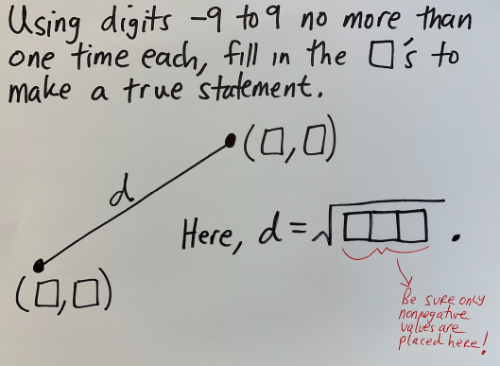 Using digits -9 to 9 no more than
one time each, fill in the □'s to
make a true statement.
(□,□)
d
Here, d = √□□□.
(□,□)
Be sure only
nonnegative
values are
placed here!